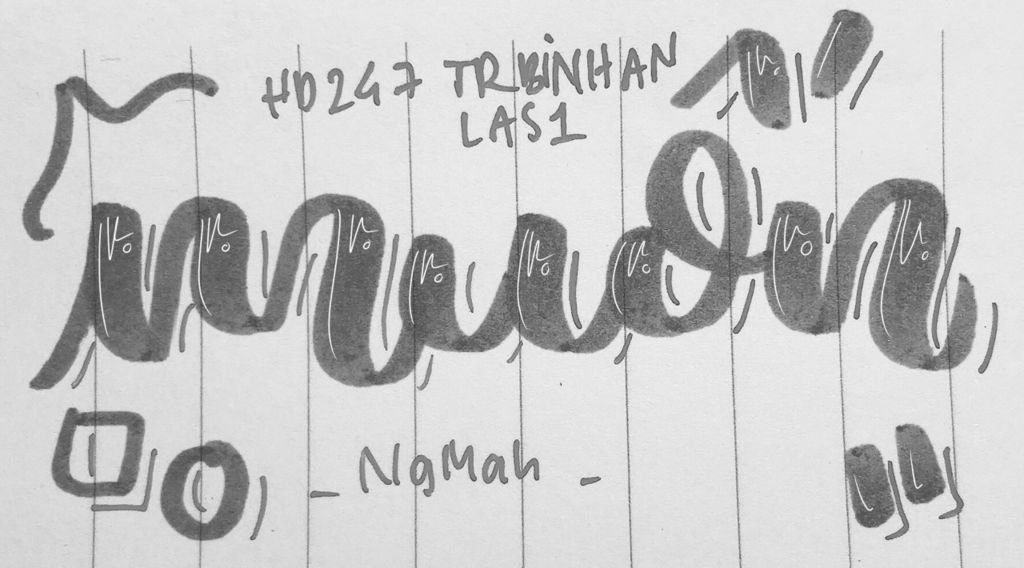 HD247 TRBiNHAN
LAS1
muốn
- NgMah -